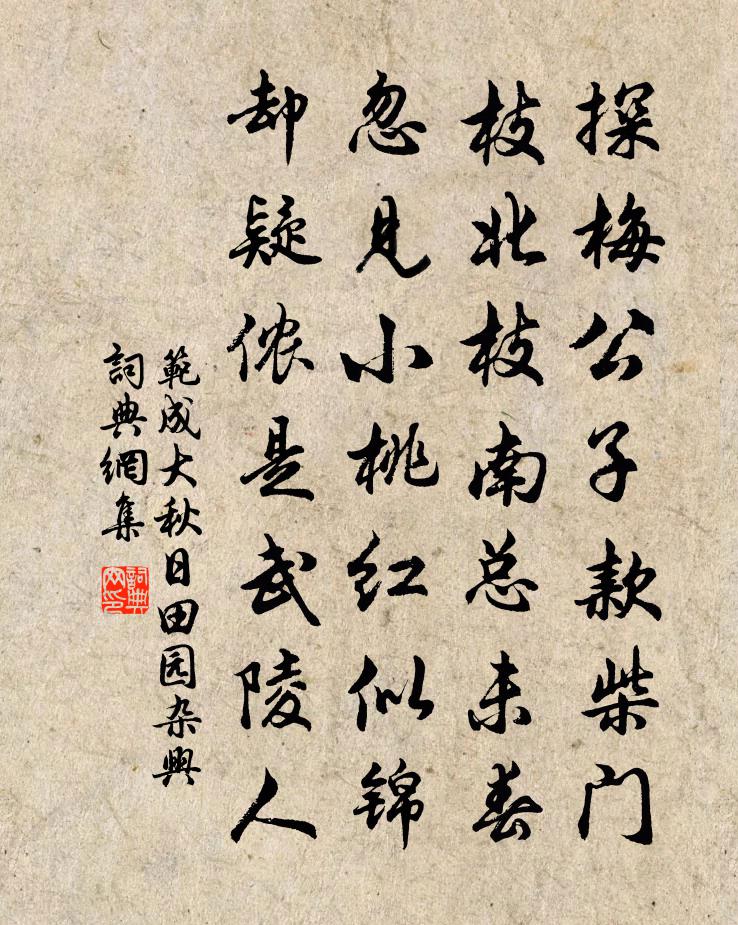 探梅公子款柴门
枝北枝南总未春
忽见小桃红似锦
却疑侬是武陵人
範成大秋日田园杂興
詞典網集
詞典网印